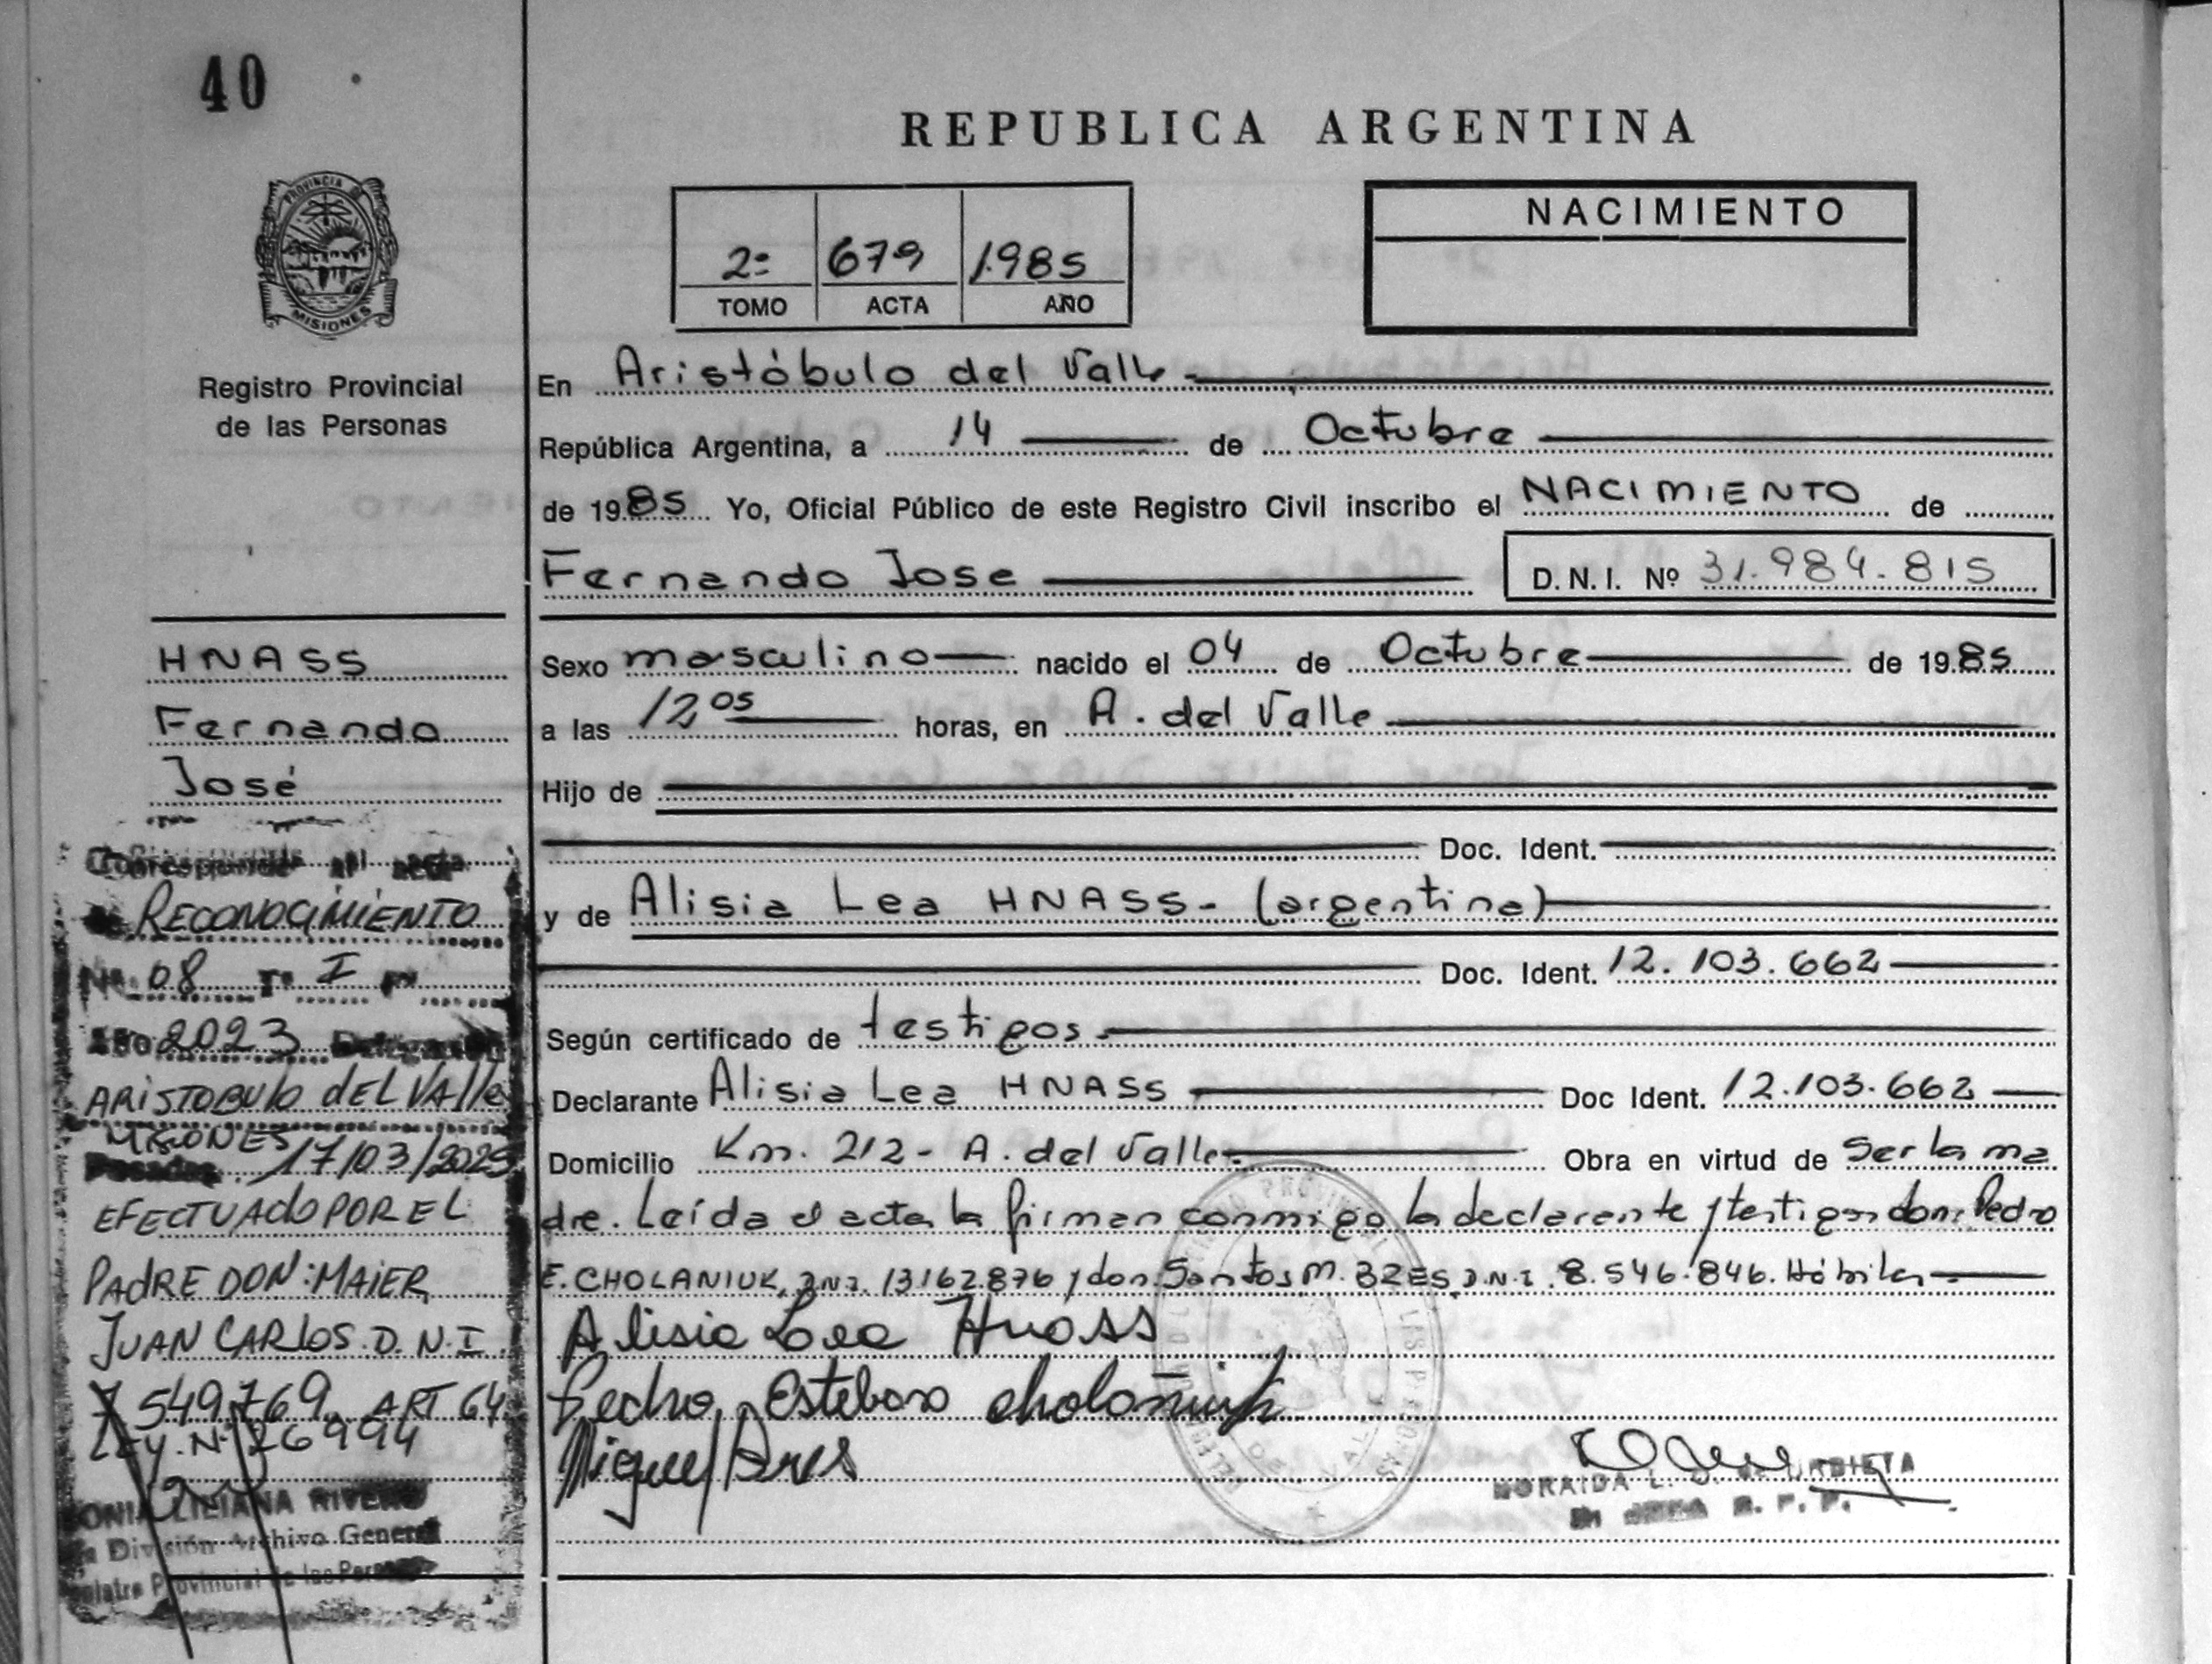 40
REPUBLICA ARGENTINA
PROVINCIA DE
MISIONES
Registro Provincial
de las Personas
2º 679 1.985
TOMO ACTA AÑO
NACIMIENTO
En Aristóbulo del Valle
República Argentina, a 14 de Octubre
de 1985 Yo, Oficial Público de este Registro Civil inscribo el NACIMIENTO de
Fernando Jose D.N.I. Nº 31.984.815
Sexo masculino nacido el 04 de Octubre de 1985
a las 12 05 horas, en A. del Valle
Hijo de
Doc. Ident.
y de Alisia Lea HNASS - (argentina)
Doc. Ident. 12.103.662
Según certificado de testigos
Declarante Alisia Lea HNASS Doc Ident. 12.103.662
Domicilio Km. 212 - A. del Valle Obra en virtud de Ser la ma
dre. Leída el acta la firman conmigo la declarante y testigos don: Pedro
E. CHOLANIUK, D.N.I. 13.162.876 y don Santos M. BRES D.N.I. 8.546.846. Hábiles
Alisia Lea Hnass
Pedro Esteban
Miguel Bres
HNASS
Fernando
José
Corresponde al acta
RECONOCIMIENTO
Nº 08 Tº I Fº
Año 2023 Delegación
ARISTOBULO DEL VAlle
MISIONES
Posadas 17/03/2023
EFECTUAdo POR EL
PAdRE DON: MAIER
JUAN CARLOS. D.N.I
7.549.769 ART 64
LEY. Nº 26994
SONIA LILIANA RIVERO
División Archivo General
Registro Provincial de las Personas